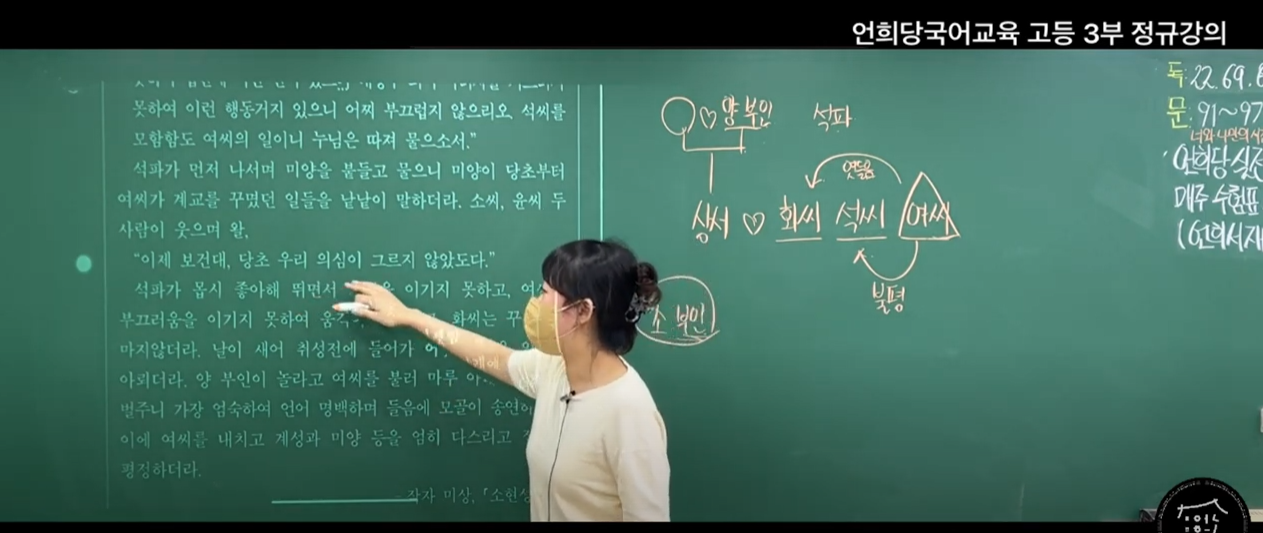 언희당국어교육 고등 3부 정규강의
못하여 이런 행동거지 있으니 어찌 부끄럽지 않으리오. 석씨를
모함함도 여씨의 일이니 누님은 따져 물으소서.”
석파가 먼저 나서며 미양을 붙들고 물으니 미양이 당초부터
여씨가 계교를 꾸몄던 일들을 낱낱이 말하더라. 소씨, 윤씨 두
사람이 웃으며 왈,
“이제 보건대, 당초 우리 의심이 그르지 않았도다.”
석파가 몹시 좋아해 뛰면서 을 이기지 못하고,
부끄러움을 이기지 못하여 화씨는
마지않더라. 날이 새어 취성전에 들어가
아뢰더라. 양 부인이 놀라고 여씨를 불러 마루
벌주니 가장 엄숙하여 언어 명백하며 들음에 모골이
이에 여씨를 내치고 계성과 미양 등을 엄히 다스리고
평정하더라.
- 작자 미상, 「소현성
♡ 양 부인 석파
상서 ♡ 화씨 석씨 여씨
엿들음
불평
소 부인
독: 22. 69.
문: 91~97
언희당 실전
매주 수험표